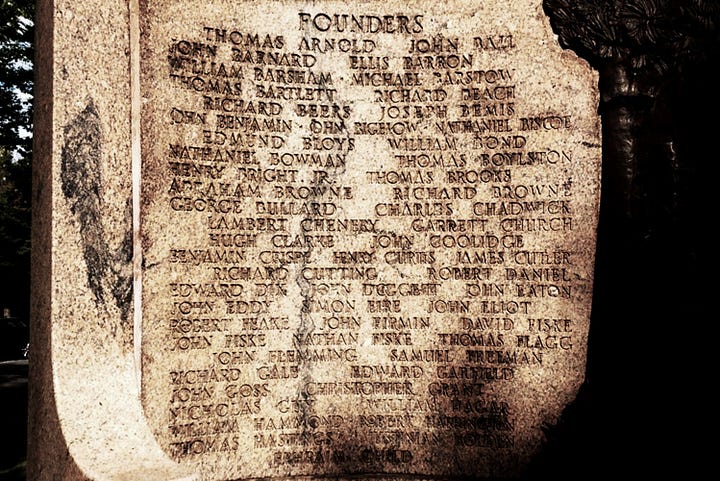 FOUNDERS
THOMAS ARNOLD JOHN BALL
JOHN BARNARD ELLIS BARRON
WILLIAM BARSHAM · MICHAEL BARSTOW
THOMAS BARTLETT RICHARD BEACH
RICHARD BEERS JOSEPH BEMIS
JOHN BENJAMIN · JOHN BIGHOW · NATHANIEL BISCOE
EDMUND BLOYS WILLIAM BOND
NATHANIEL BOWMAN THOMAS BOYLSTON
HENRY BRIGHT, JR. THOMAS BROOKS
ABRAHAM BROWNE RICHARD BROWNE
GEORGE BULLARD CHARLES CHADWICK
LAMBERT CHENERY GARRETT CHURCH
HUGH CLARKE JOHN COOLIDGE
BENJAMIN CRISPE HENRY CURTIS JAMES CUTLER
RICHARD CUTTING ROBERT DANIEL
EDWARD DIX JOHN DOGGETT JOHN EATON
JOHN EDDY SIMON EIRE JOHN ELIOT
ROBERT FEAKE JOHN FIRMIN DAVID FISKE
JOHN FISKE NATHAN FISKE THOMAS FLAGG
JOHN FLEMMING SAMUEL FREEMAN
RICHARD GALE EDWARD GARFIELD
JOHN GOSS CHRISTOPHER GRANT
NICHOLAS WILLIAM HAGAR
WILLIAM HAMMOND ROBERT HARRINGTON
THOMAS HASTINGS
EPHRAIM CHILD